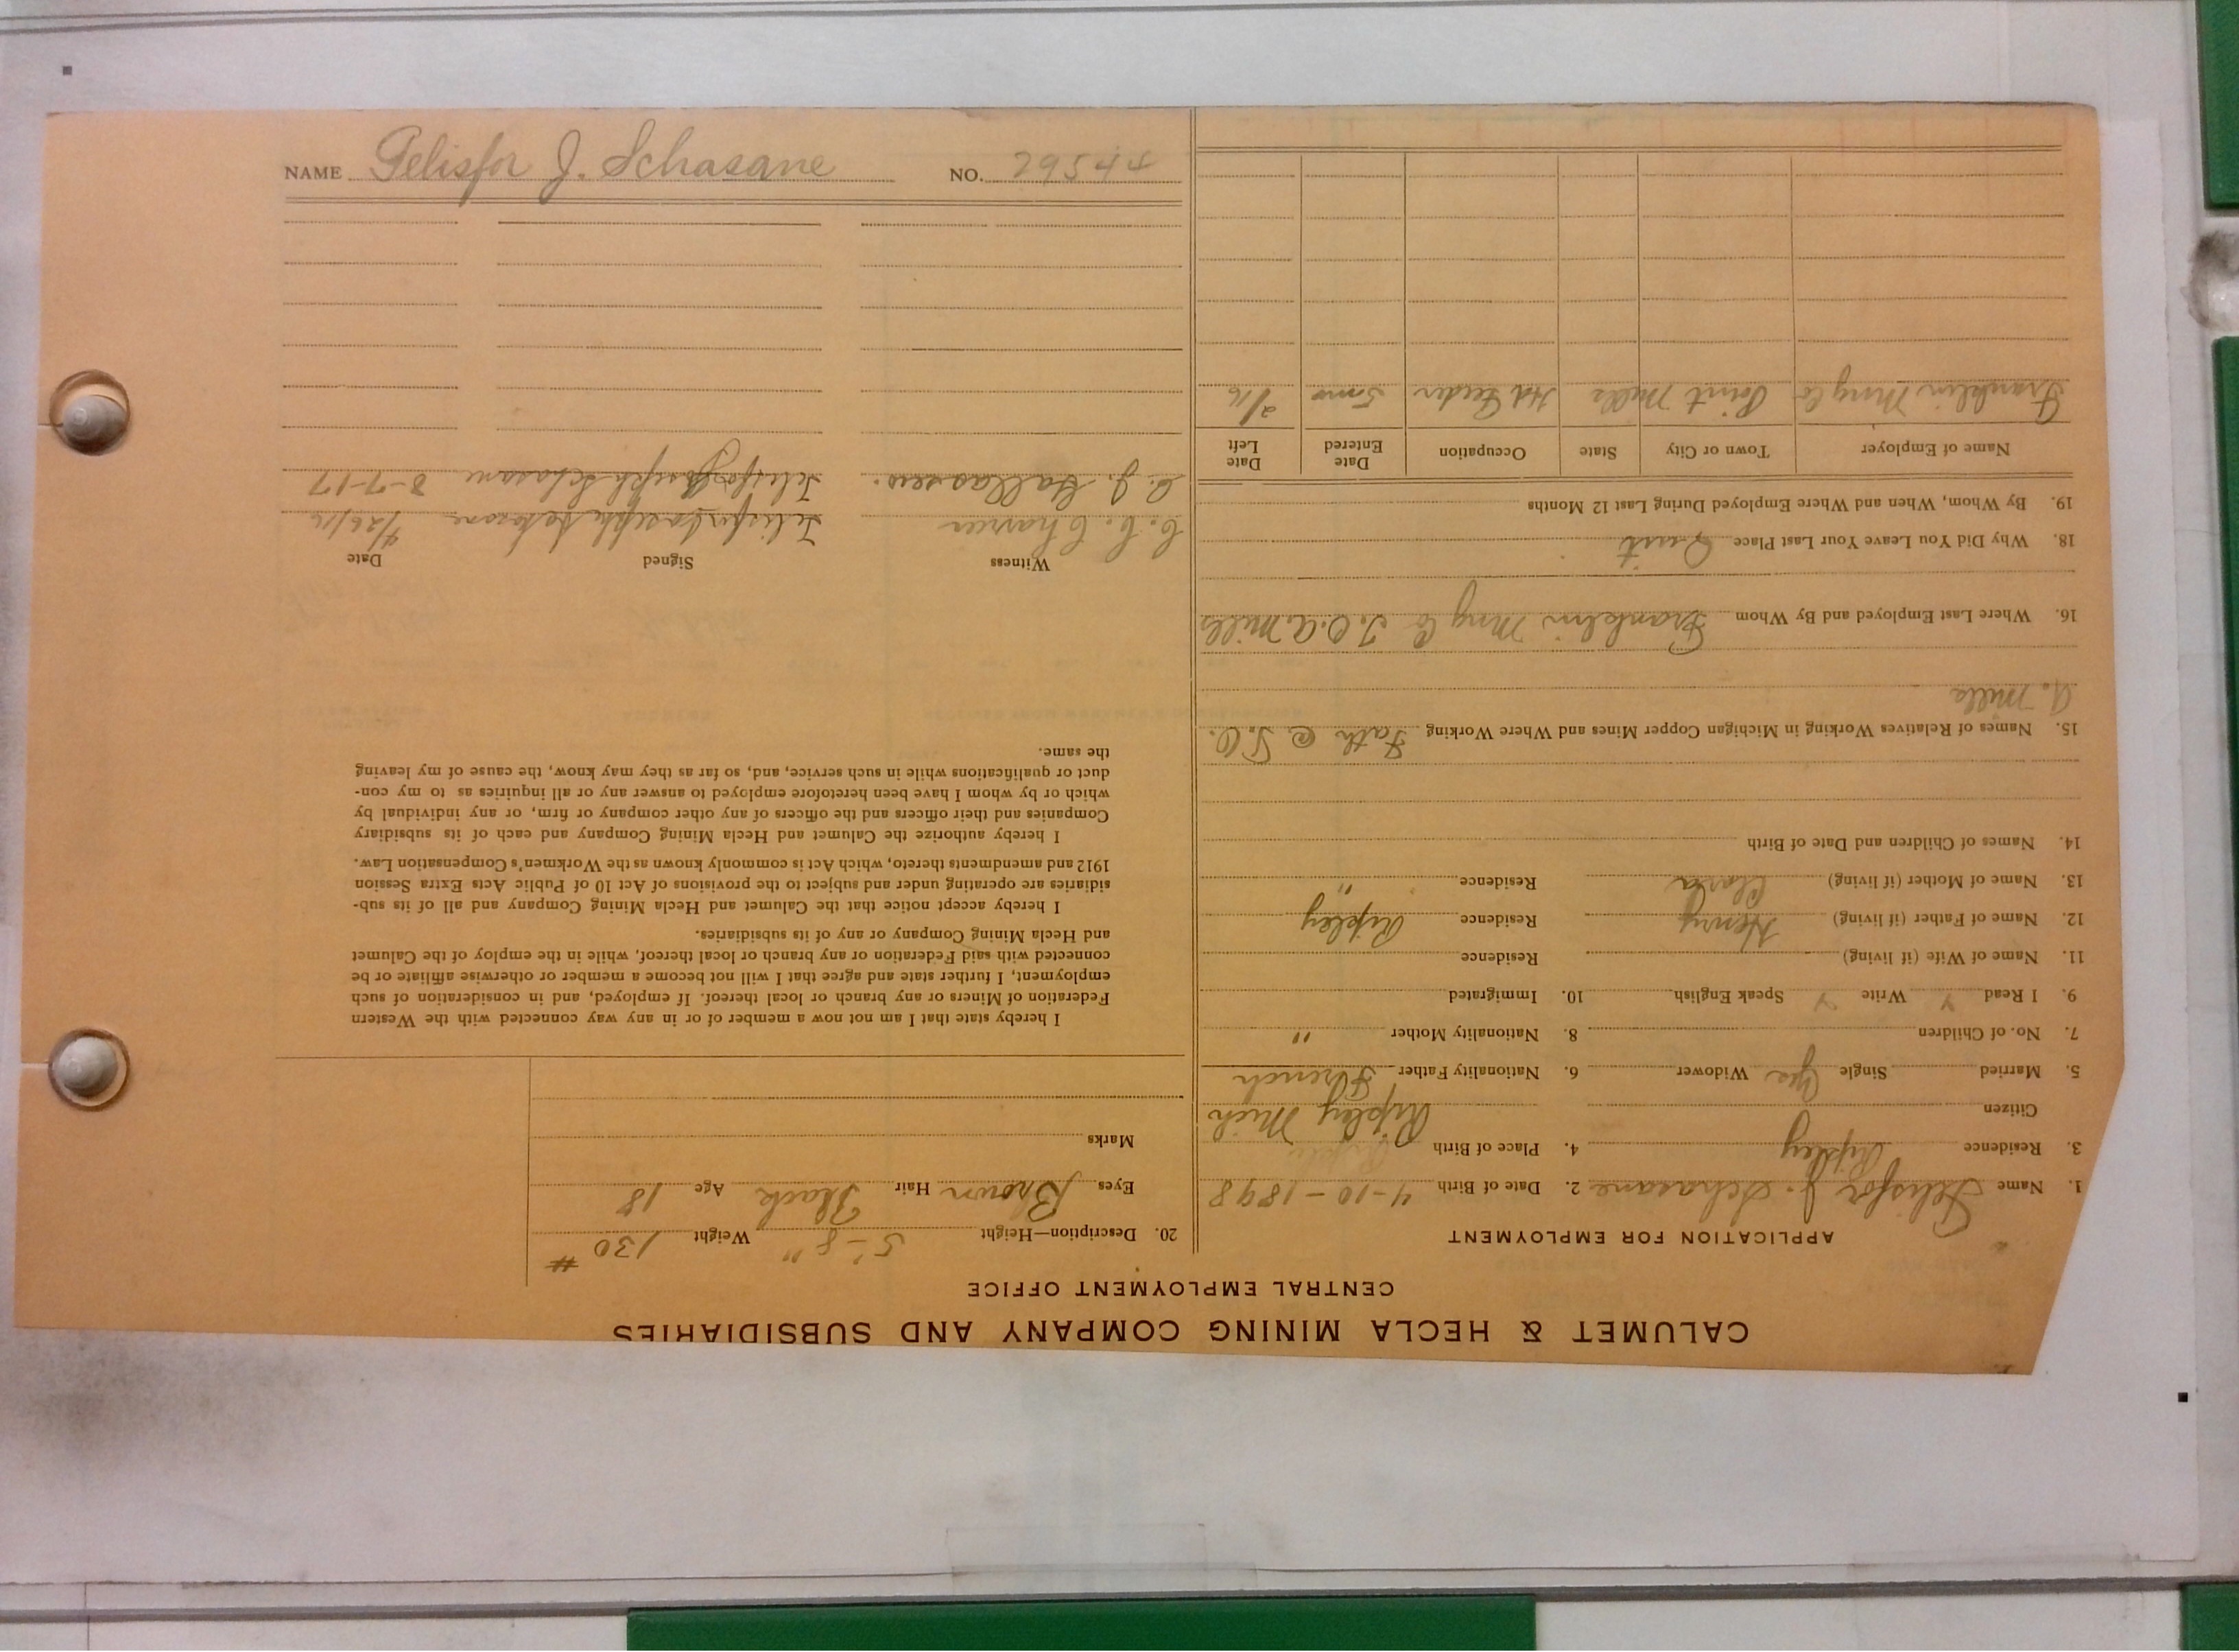 CALUMET & HECLA MINING COMPANY AND SUBSIDIARIES
CENTRAL EMPLOYMENT OFFICE
APPLICATION FOR EMPLOYMENT
1. Name Telisfor J. Schasane 2. Date of Birth 4-10-1898
3. Residence Ripley 4. Place of Birth Ripley Mich
Citizen
5. Married Single Yes Widower 6. Nationality Father French
7. No. of Children 8. Nationality Mother "
9. I Read Write Speak English 10. Immigrated
11. Name of Wife (if living) Residence
12. Name of Father (if living) Henry Residence Ripley
13. Name of Mother (if living) Clara Residence "
14. Names of Children and Date of Birth
15. Names of Relatives Working in Michigan Copper Mines and Where Working Fath @ T. O.
A. Mills
16. Where Last Employed and By Whom Franklin Mng Co T. O. A. Mills
18. Why Did You Leave Your Last Place Quit
19. By Whom, When and Where Employed During Last 12 Months
Name of Employer Town or City State Occupation Date Entered Date Left
Franklin Mng Co Point Mills Hd Feeder 5 mo 2/16
20. Description—Height 5'-8" Weight 130 #
Eyes Brown Hair Black Age 18
Marks
I hereby state that I am not now a member of or in any way connected with the Western
Federation of Miners or any branch or local thereof. If employed, and in consideration of such
employment, I further state and agree that I will not become a member or otherwise affiliate or be
connected with said Federation or any branch or local thereof, while in the employ of the Calumet
and Hecla Mining Company or any of its subsidiaries.
I hereby accept notice that the Calumet and Hecla Mining Company and all of its sub-
sidiaries are operating under and subject to the provisions of Act 10 of Public Acts Extra Session
1912 and amendments thereto, which Act is commonly known as the Workmen's Compensation Law.
I hereby authorize the Calumet and Hecla Mining Company and each of its subsidiary
Companies and their officers and the officers of any other company or firm, or any individual by
which or by whom I have been heretofore employed to answer any or all inquiries as to my con-
duct or qualifications while in such service, and, so far as they may know, the cause of my leaving
the same.
Witness Signed Date
C. C. Telisfor Joseph Schasane 4/26/16
C. J. Telisfor Joseph Schasane 8-7-17
NAME Telisfor J. Schasane NO. 29545